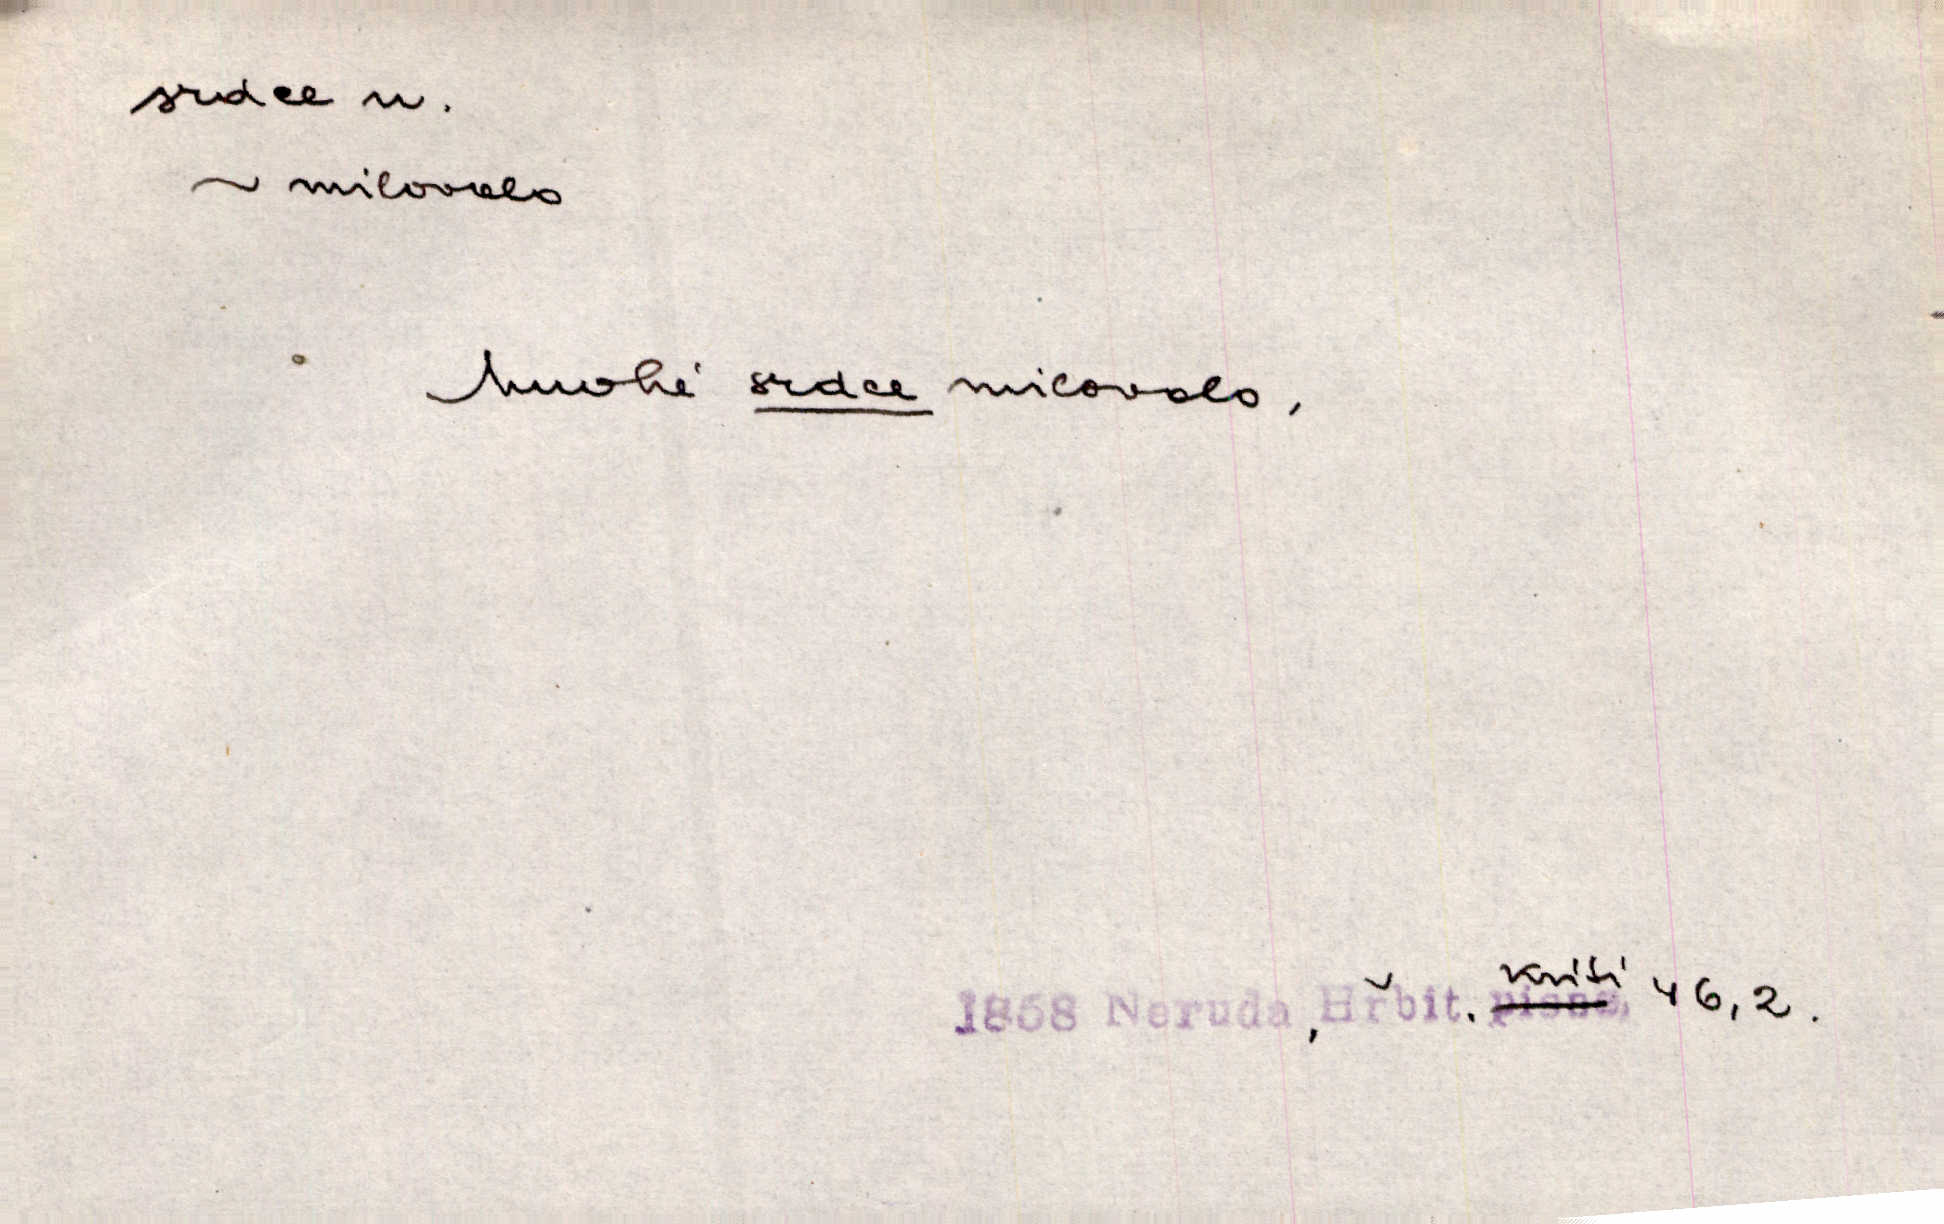 srdce n.
~ milovalo
Mnohé srdce milovalo,
1858 Neruda, Hřbit. kvítí 46,2.